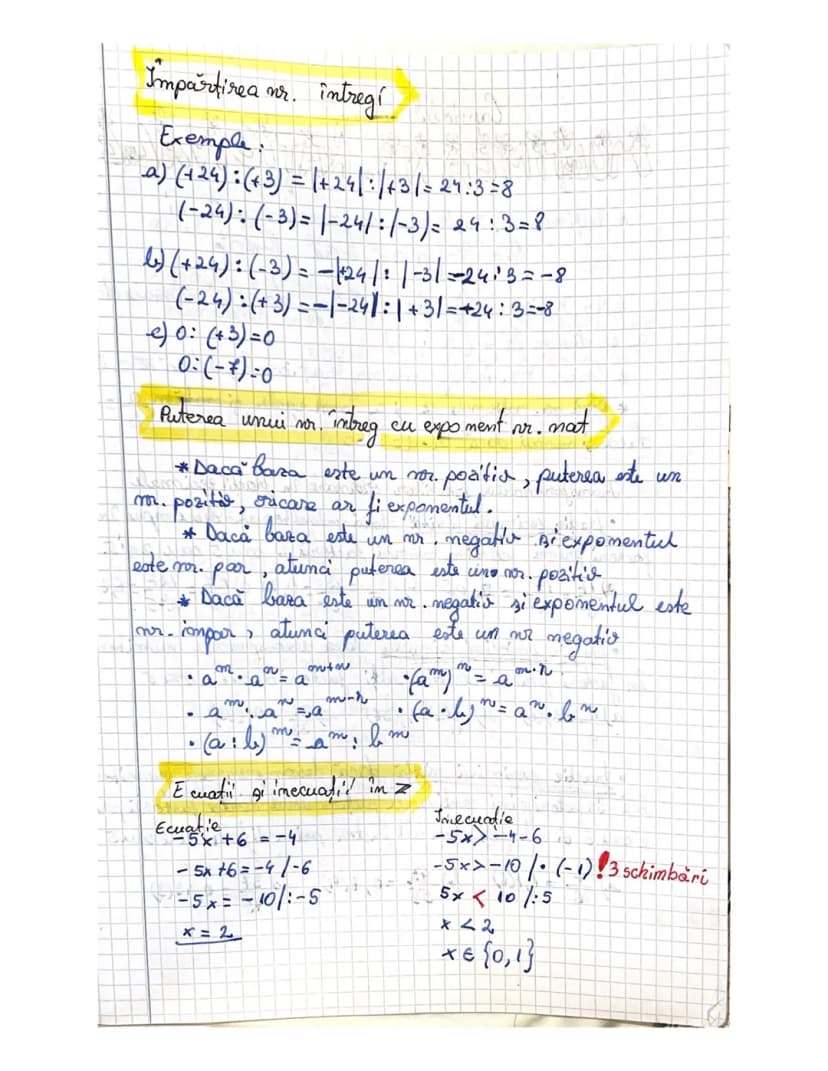 Împărțirea nr. întregi
Exemple:
a) (+24):(+3) = |+24|:|+3|= 24:3=8
(-24):(-3)= |-24|:|-3)= 24:3=8
b) (+24):(-3) = -|+24|: |-3|=-24:3=-8
(-24):(+3) =-|-24|:|+3|=-24:3=-8
c) 0: (+3)=0
0:(-7)=0
Puterea unui nr. întreg cu exponent nr. nat
* Dacă baza este un nr. pozitiv, puterea este un
nr. pozitiv, oricare ar fi exponentul.
* Dacă baza este un nr. negativ și exponentul
este nr. par, atunci puterea este un nr. pozitiv
* Dacă baza este un nr. negativ și exponentul este
nr. impar, atunci puterea este un nr negativ
• aᵐ · aⁿ = aᵐ⁺ⁿ • (aᵐ)ⁿ = aᵐ·ⁿ
• aᵐ : aⁿ = aᵐ⁻ⁿ • (a · b)ⁿ = aⁿ · bⁿ
• (a : b)ᵐ = aᵐ : bᵐ
Ecuații și inecuații în Z
Ecuație
-5x+6 = -4
-5x+6=-4 /-6
-5x= -10/:-5
x = 2
Inecuație
-5x> -4-6
-5x>-10 /· (-1) ! 3 schimbări
5x < 10 /:5
x < 2
x ∈ {0,1}